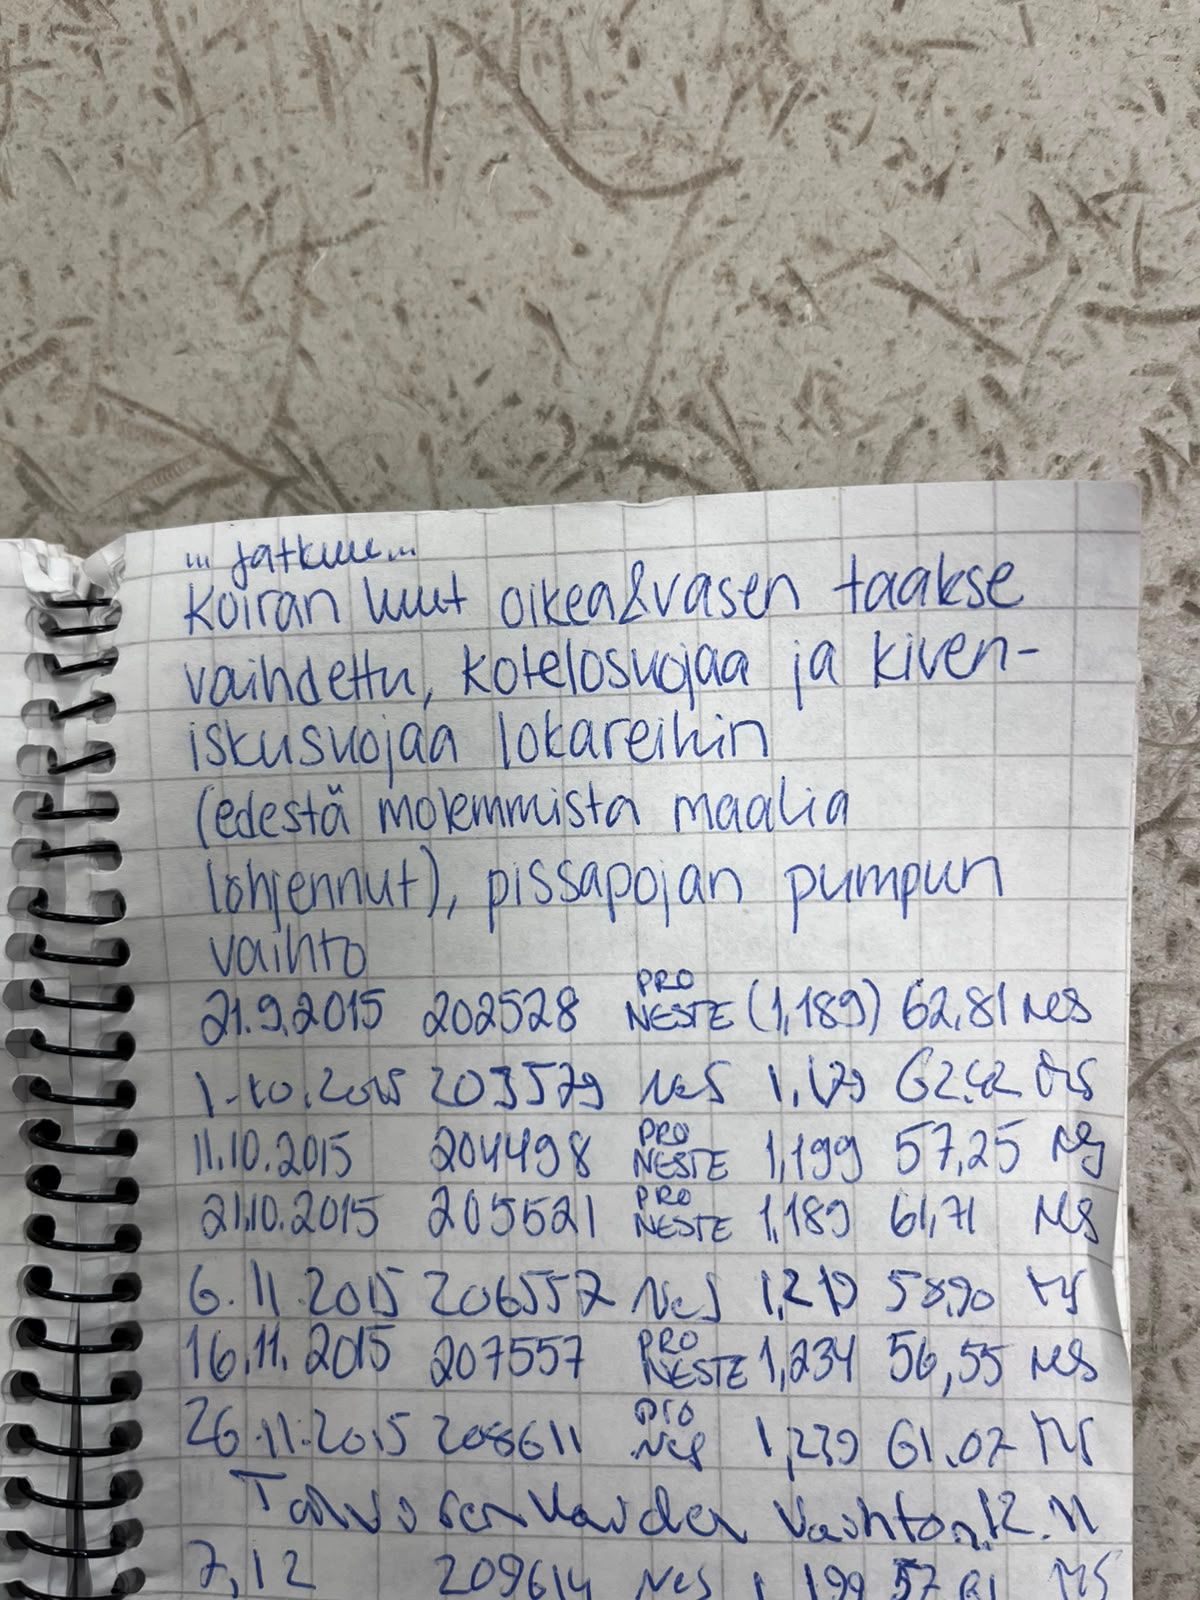 ... jatkuu...
Koiran luut oikea&vasen taakse
vaihdettu, kotelosuojaa ja kiven-
iskusuojaa lokareihin
(edestä molemmista maalia
lohjennut), pissapojan pumpun
vaihto
21.9.2015 202528 PRO NESTE (1,189) 62,81 MS
1.10.2015 203579 Nes 1,179 62.42 MS
11.10.2015 204498 PRO NESTE 1,199 57,25 MS
21.10.2015 205521 PRO NESTE 1,189 61,71 MS
6.11.2015 206557 Nes 1,219 58,90 MS
16.11.2015 207557 PRO NESTE 1,234 56,55 MS
26.11.2015 208611 pro Nes 1,239 61.07 MS
Talvirenkaiden vaihto 12.11
7,12 209614 Nes 1,199 57 MS